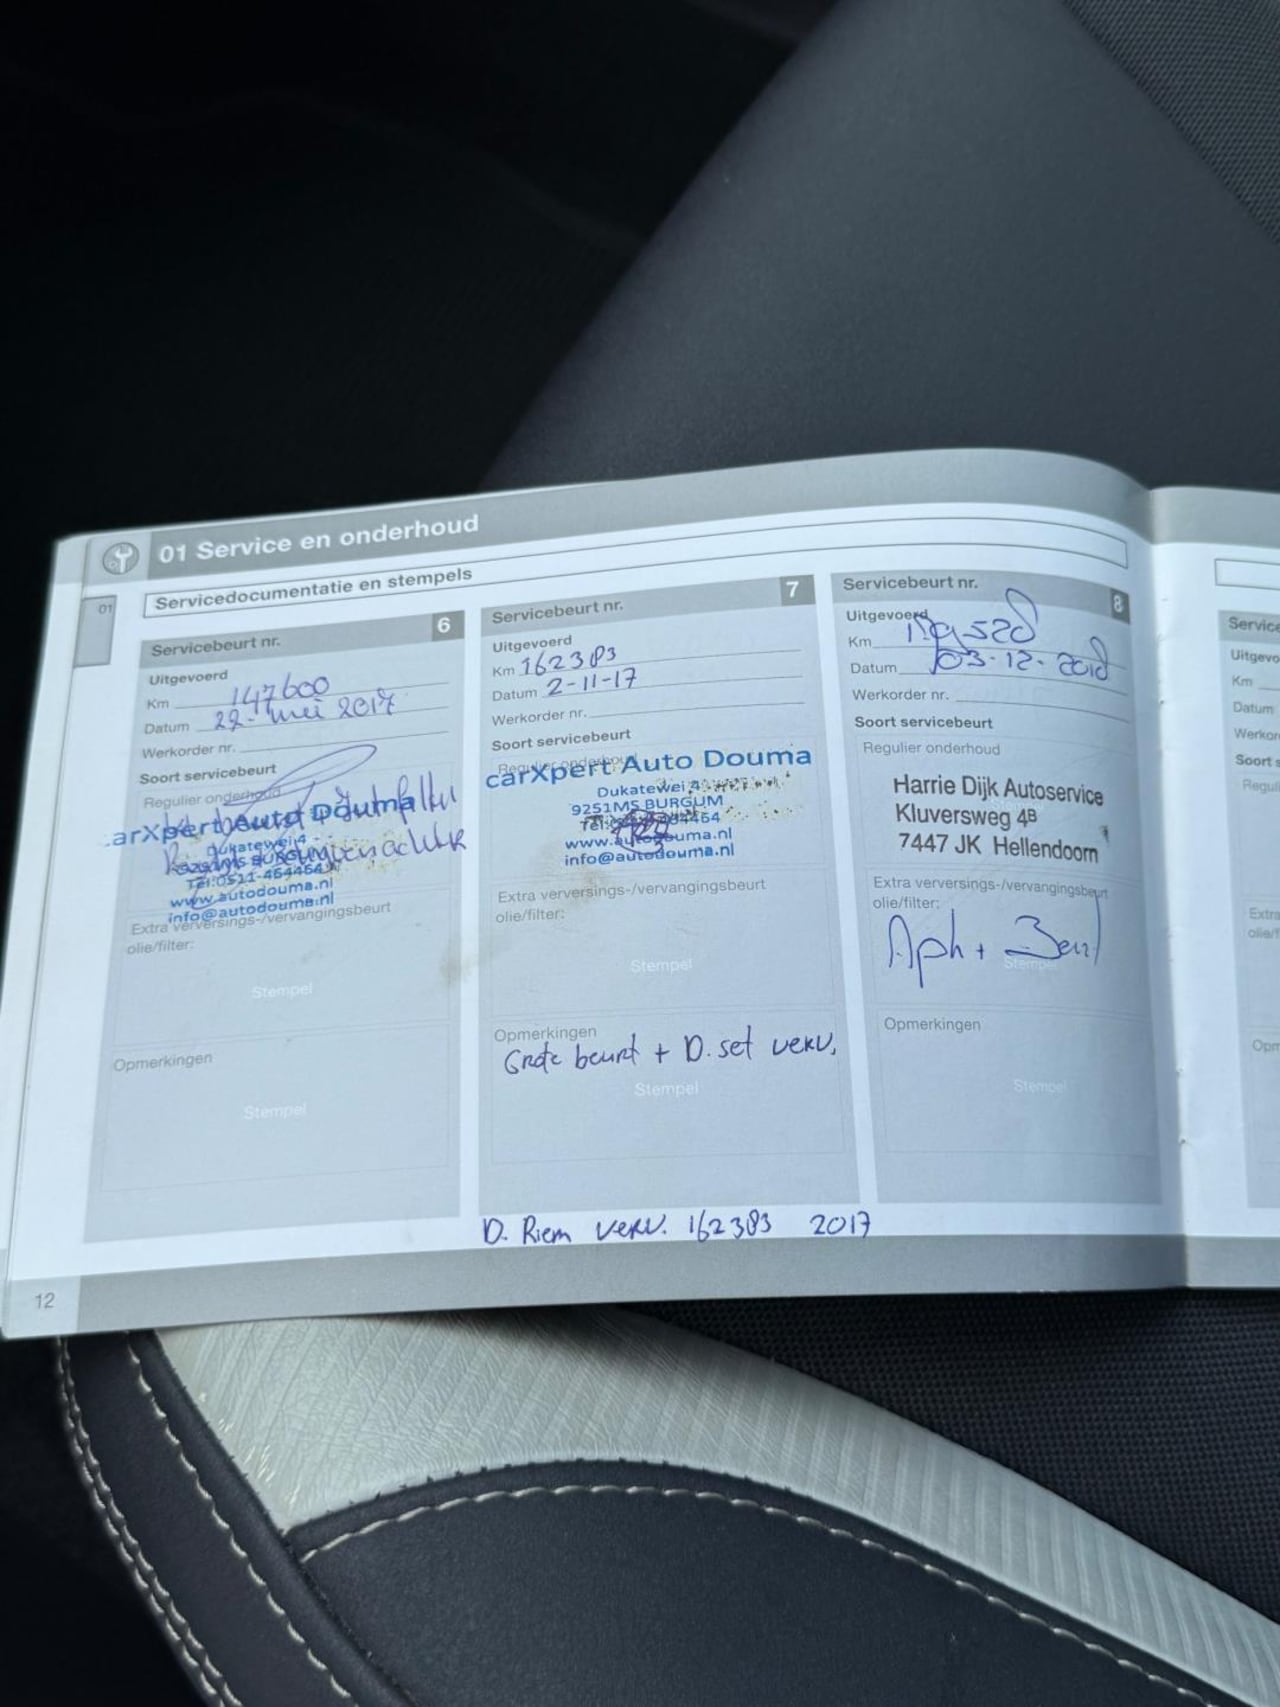 01 Service en onderhoud
01
Servicedocumentatie en stempels
Servicebeurt nr. 6
Uitgevoerd
Km 147600
Datum 22 mei 2017
Werkorder nr.
Soort servicebeurt
Regulier onderhoud
carXpert Auto Douma
Dukatewei 4
9251MS BURGUM
Tel:0511-464464
www.autodouma.nl
info@autodouma.nl
Extra verversings-/vervangingsbeurt
olie/filter:
Stempel
Opmerkingen
Stempel
Servicebeurt nr. 7
Uitgevoerd
Km 162383
Datum 2-11-17
Werkorder nr.
Soort servicebeurt
Regulier onderhoud
carXpert Auto Douma
Dukatewei 4
9251MS BURGUM
www.autodouma.nl
info@autodouma.nl
Extra verversings-/vervangingsbeurt
olie/filter:
Stempel
Opmerkingen
Grote beurt + D. set verv.
Stempel
Servicebeurt nr. 8
Uitgevoerd
Km
Datum 03-12-2018
Werkorder nr.
Soort servicebeurt
Regulier onderhoud
Harrie Dijk Autoservice
Kluversweg 4B
7447 JK Hellendoorn
Extra verversings-/vervangingsbeurt
olie/filter:
Stempel
Opmerkingen
Stempel
D. Riem verv. 162383 2017
12
Km
Datum